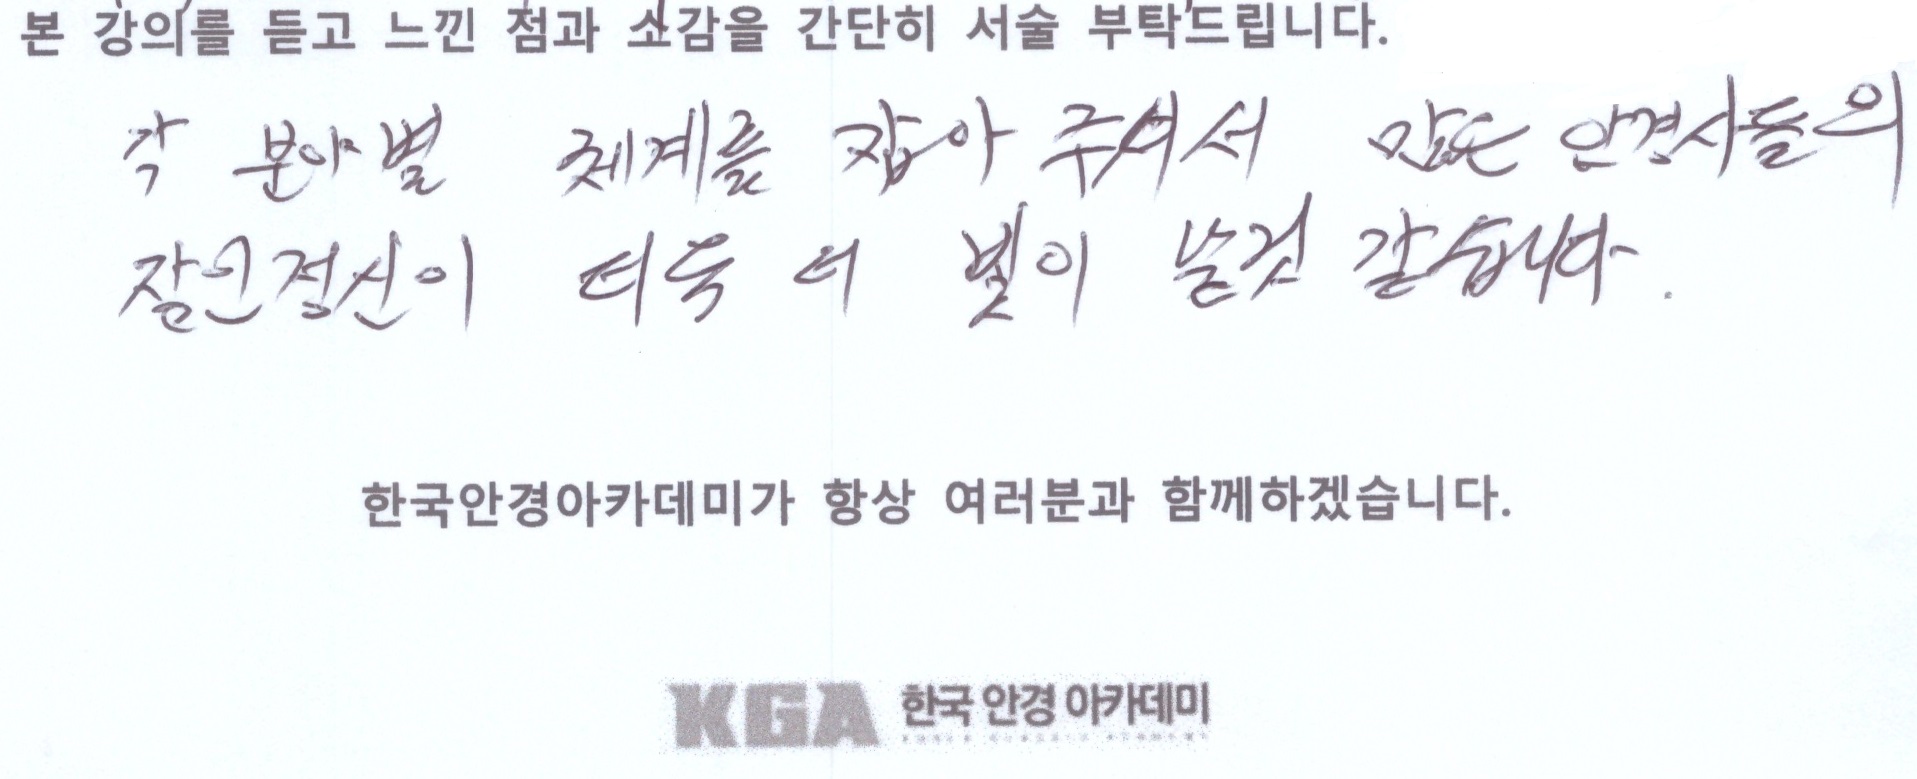 본 강의를 듣고 느낀 점과 소감을 간단히 서술 부탁드립니다.
각 분야별 체계를 잡아 주셔서 많은 안경사들의
장인정신이 더욱 더 빛이 날것 같습니다.
한국안경아카데미가 항상 여러분과 함께하겠습니다.
KGA 한국 안경 아카데미